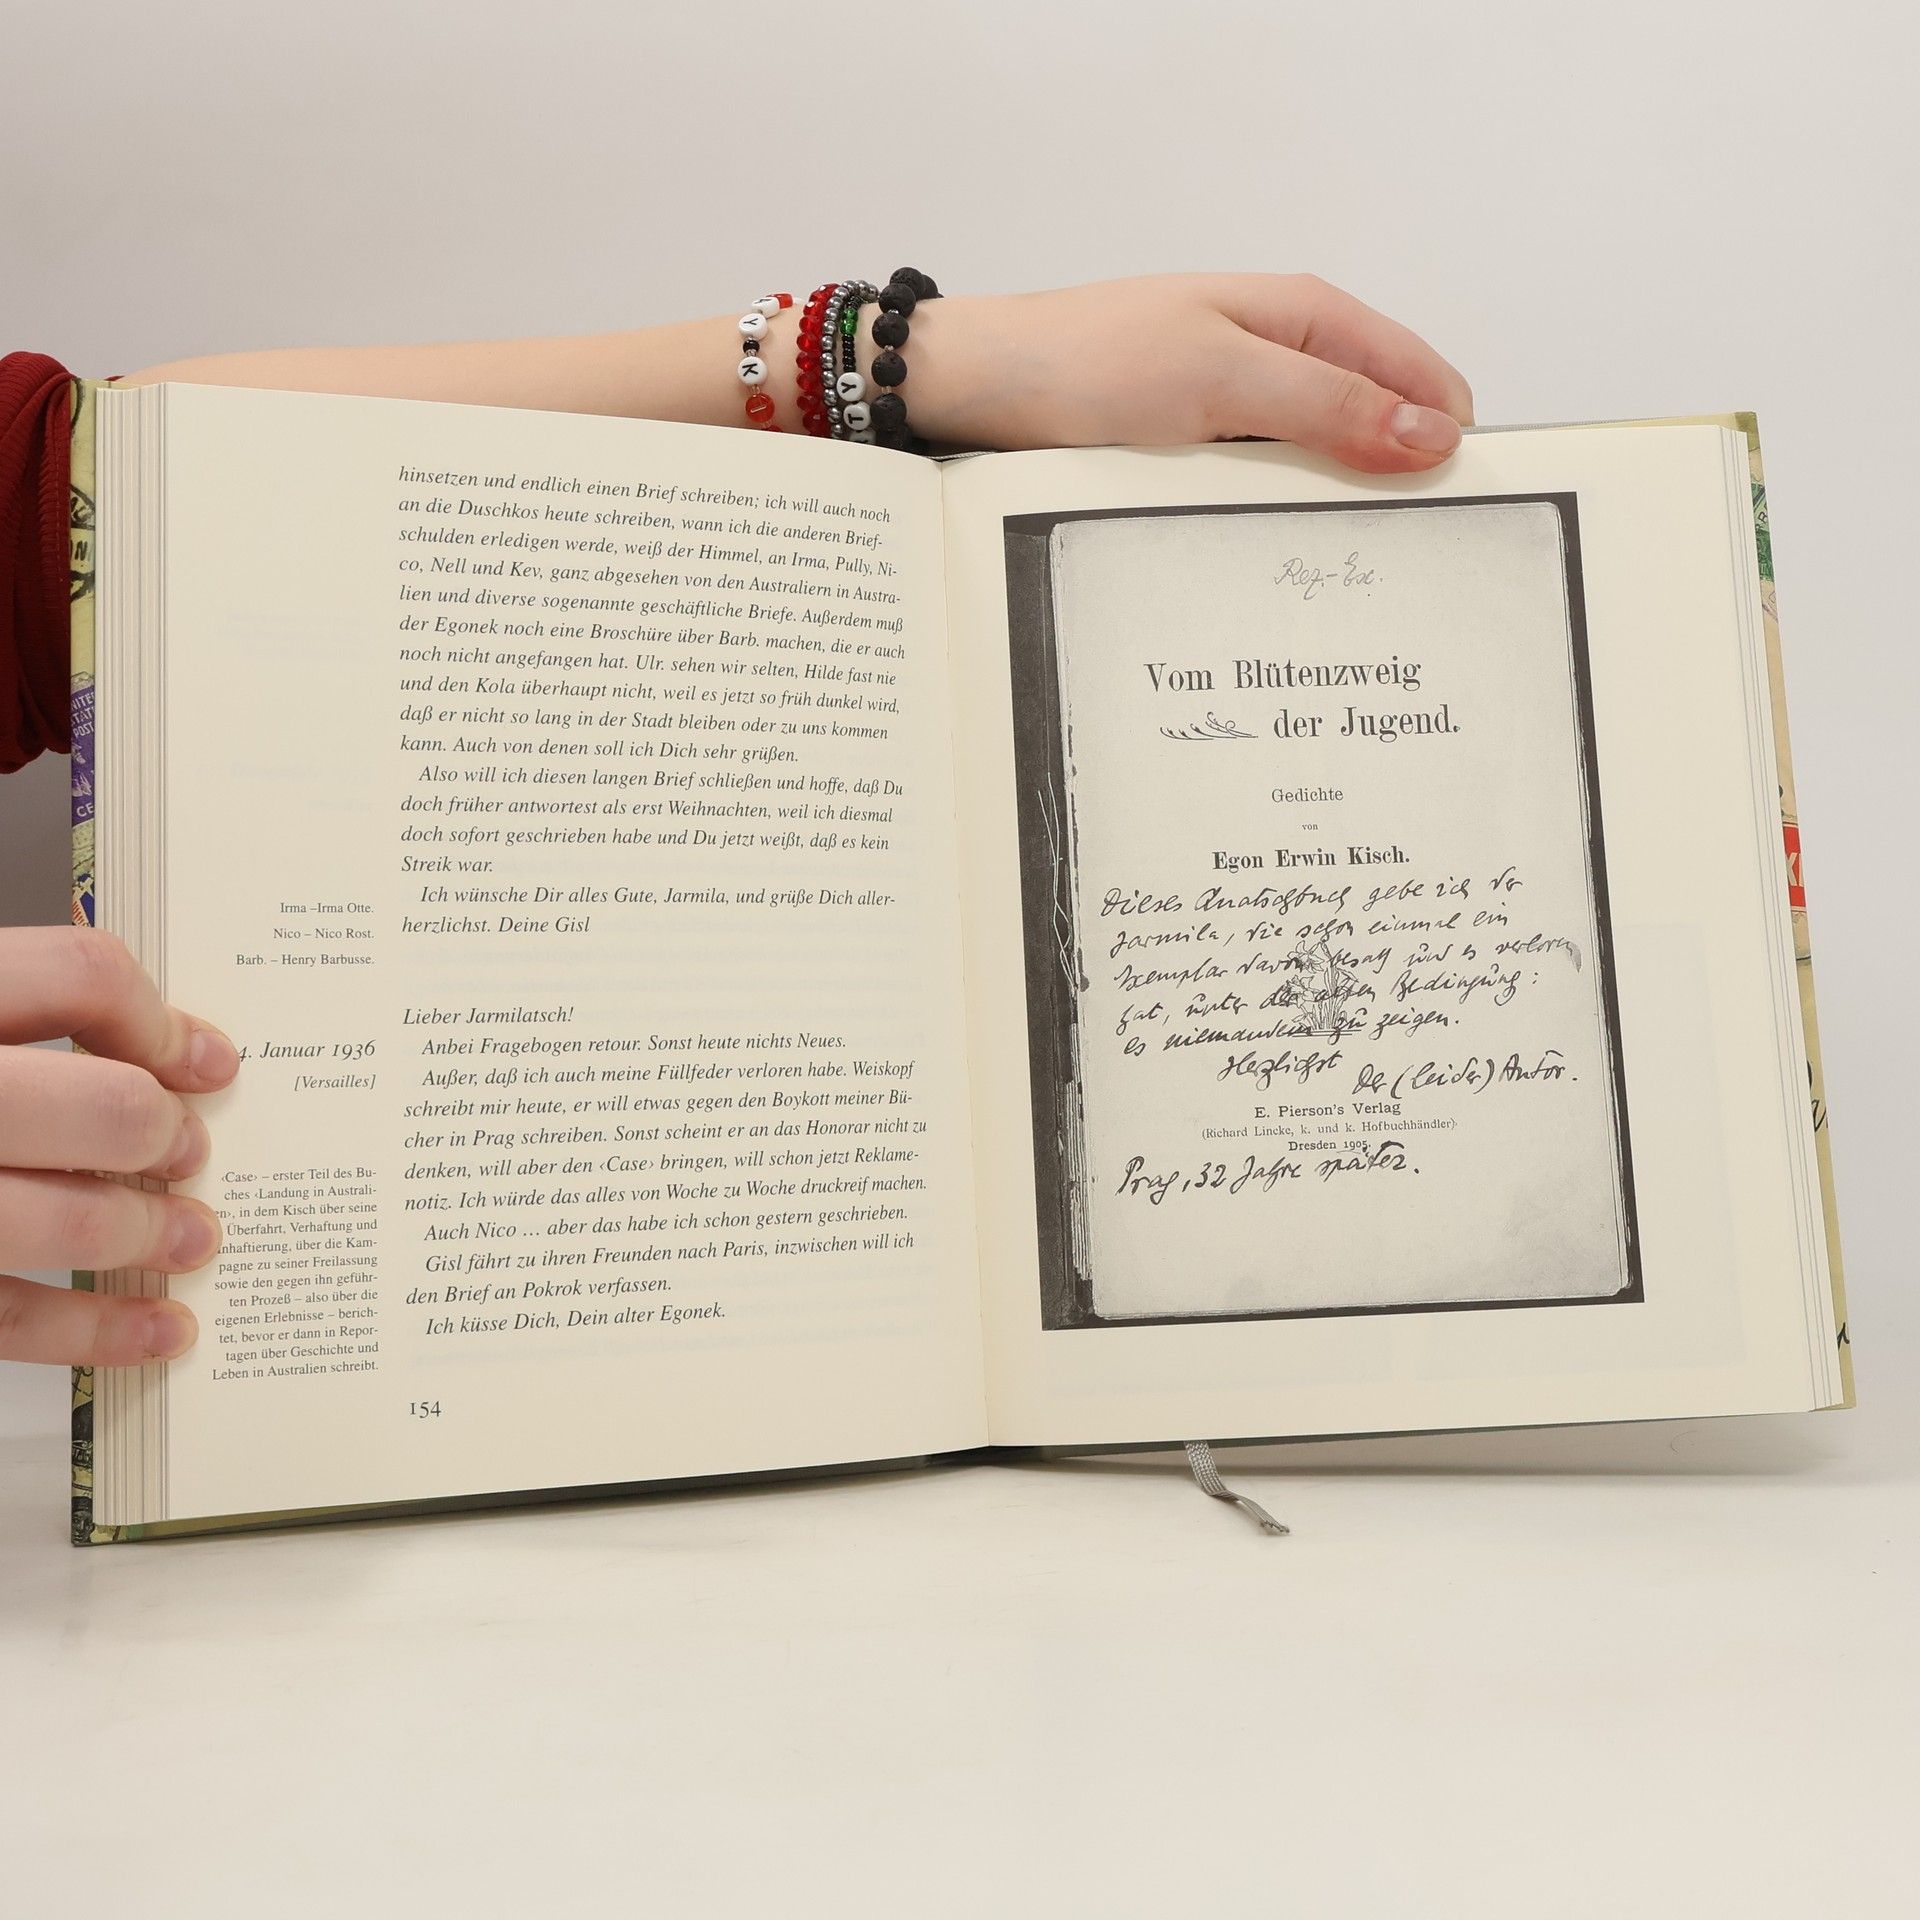 hinsetzen und endlich einen Brief schreiben; ich will auch noch
an die Duschkos heute schreiben, wann ich die anderen Brief-
schulden erledigen werde, weiß der Himmel, an Irma, Pully, Ni-
co, Nell und Kev, ganz abgesehen von den Australiern in Austra-
lien und diverse sogenannte geschäftliche Briefe. Außerdem muß
der Egonek noch eine Broschüre über Barb. machen, die er auch
noch nicht angefangen hat. Ulr. sehen wir selten, Hilde fast nie
und den Kola überhaupt nicht, weil es jetzt so früh dunkel wird,
daß er nicht so lang in der Stadt bleiben oder zu uns kommen
kann. Auch von denen soll ich Dich sehr grüßen.
Also will ich diesen langen Brief schließen und hoffe, daß Du
doch früher antwortest als erst Weihnachten, weil ich diesmal
doch sofort geschrieben habe und Du jetzt weißt, daß es kein
Streik war.
Ich wünsche Dir alles Gute, Jarmila, und grüße Dich aller-
herzlichst. Deine Gisl
Irma –Irma Otte.
Nico – Nico Rost.
Barb. – Henry Barbusse.
4. Januar 1936
[Versailles]
Lieber Jarmilatsch!
Anbei Fragebogen retour. Sonst heute nichts Neues.
Außer, daß ich auch meine Füllfeder verloren habe. Weiskopf
schreibt mir heute, er will etwas gegen den Boykott meiner Bü-
cher in Prag schreiben. Sonst scheint er an das Honorar nicht zu
denken, will aber den ‹Case› bringen, will schon jetzt Reklame-
notiz. Ich würde das alles von Woche zu Woche druckreif machen.
Auch Nico … aber das habe ich schon gestern geschrieben.
Gisl fährt zu ihren Freunden nach Paris, inzwischen will ich
den Brief an Pokrok verfassen.
Ich küsse Dich, Dein alter Egonek.
‹Case› – erster Teil des Bu-
ches ‹Landung in Australi-
en›, in dem Kisch über seine
Überfahrt, Verhaftung und
nhaftierung, über die Kam-
pagne zu seiner Freilassung
sowie den gegen ihn geführ-
ten Prozeß – also über die
eigenen Erlebnisse – berich-
tet, bevor er dann in Repor-
tagen über Geschichte und
Leben in Australien schreibt.
154
Rez.-Ex.
Vom Blütenzweig
der Jugend.
Gedichte
von
Egon Erwin Kisch.
Dieses Quatschbuch gebe ich der
Jarmila, die schon einmal ein
Exemplar davon besaß und es verloren
hat, unter der alten Bedingung:
es niemandem zu zeigen.
Herzlichst
der (leider) Autor.
E. Pierson's Verlag
(Richard Lincke, k. und k. Hofbuchhändler).
Dresden 1905.
Prag, 32 Jahre später.
Y
K
Y
T